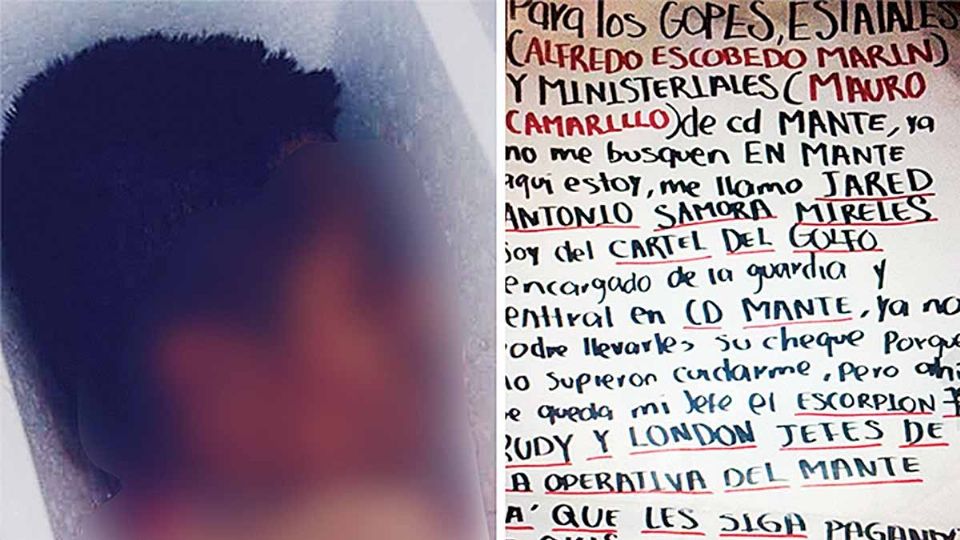 Para los GOPES, ESTATALES
(ALFREDO ESCOBEDO MARIN)
Y MINISTERIALES (MAURO
CAMARILLO) de cd MANTE, ya
no me busquen EN MANTE
aqui estoy, me llamo JARED
ANTONIO SAMORA MIRELES
soy del CARTEL DEL GOLFO
encargado de la guardia y
entiral en CD MANTE, ya no
podre llevarles su cheque Porque
no supieron cuidarme, Pero ahi
se queda mi Jefe el ESCORPION
RUDY Y LONDON JEFES DE
LA OPERATIVA DEL MANTE
QUE LES SIGA PAGANDO